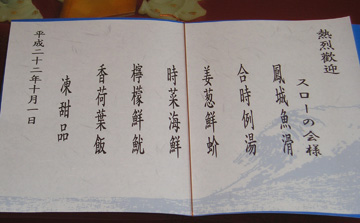 熱烈歡迎
スローの会様
鳳城魚滑
合時例湯
姜葱鮮蚧
時菜海鮮
檸檬鮮魷
香荷葉飯
凍甜品
平成二十二年十月一日